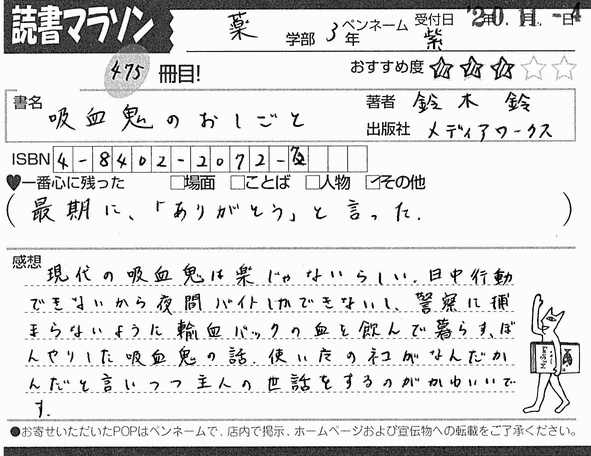 読書マラソン
薬 学部 3年 ペンネーム 紫 受付日 '20年11月-4日
475冊目! おすすめ度 ☆☆☆☆☆
書名 吸血鬼のおしごと 著者 鈴木 鈴
出版社 メディアワークス
ISBN 4-8402-2072-
♥一番心に残った □場面 □ことば □人物 ☑その他
(最期に、「ありがとう」と言った.)
感想
現代の吸血鬼は楽じゃないらしい.日中行動
できないから夜間バイトしかできないし、警察に捕
まらないように輸血パックの血を飲んで暮らす、ぼ
んやりした吸血鬼の話.使い魔のネコがなんだか
んだと言いつつ主人の世話をするのがかわいいで
す.
●お寄せいただいたPOPはペンネームで、店内で掲示、ホームページおよび宣伝物への転載をご了承ください。